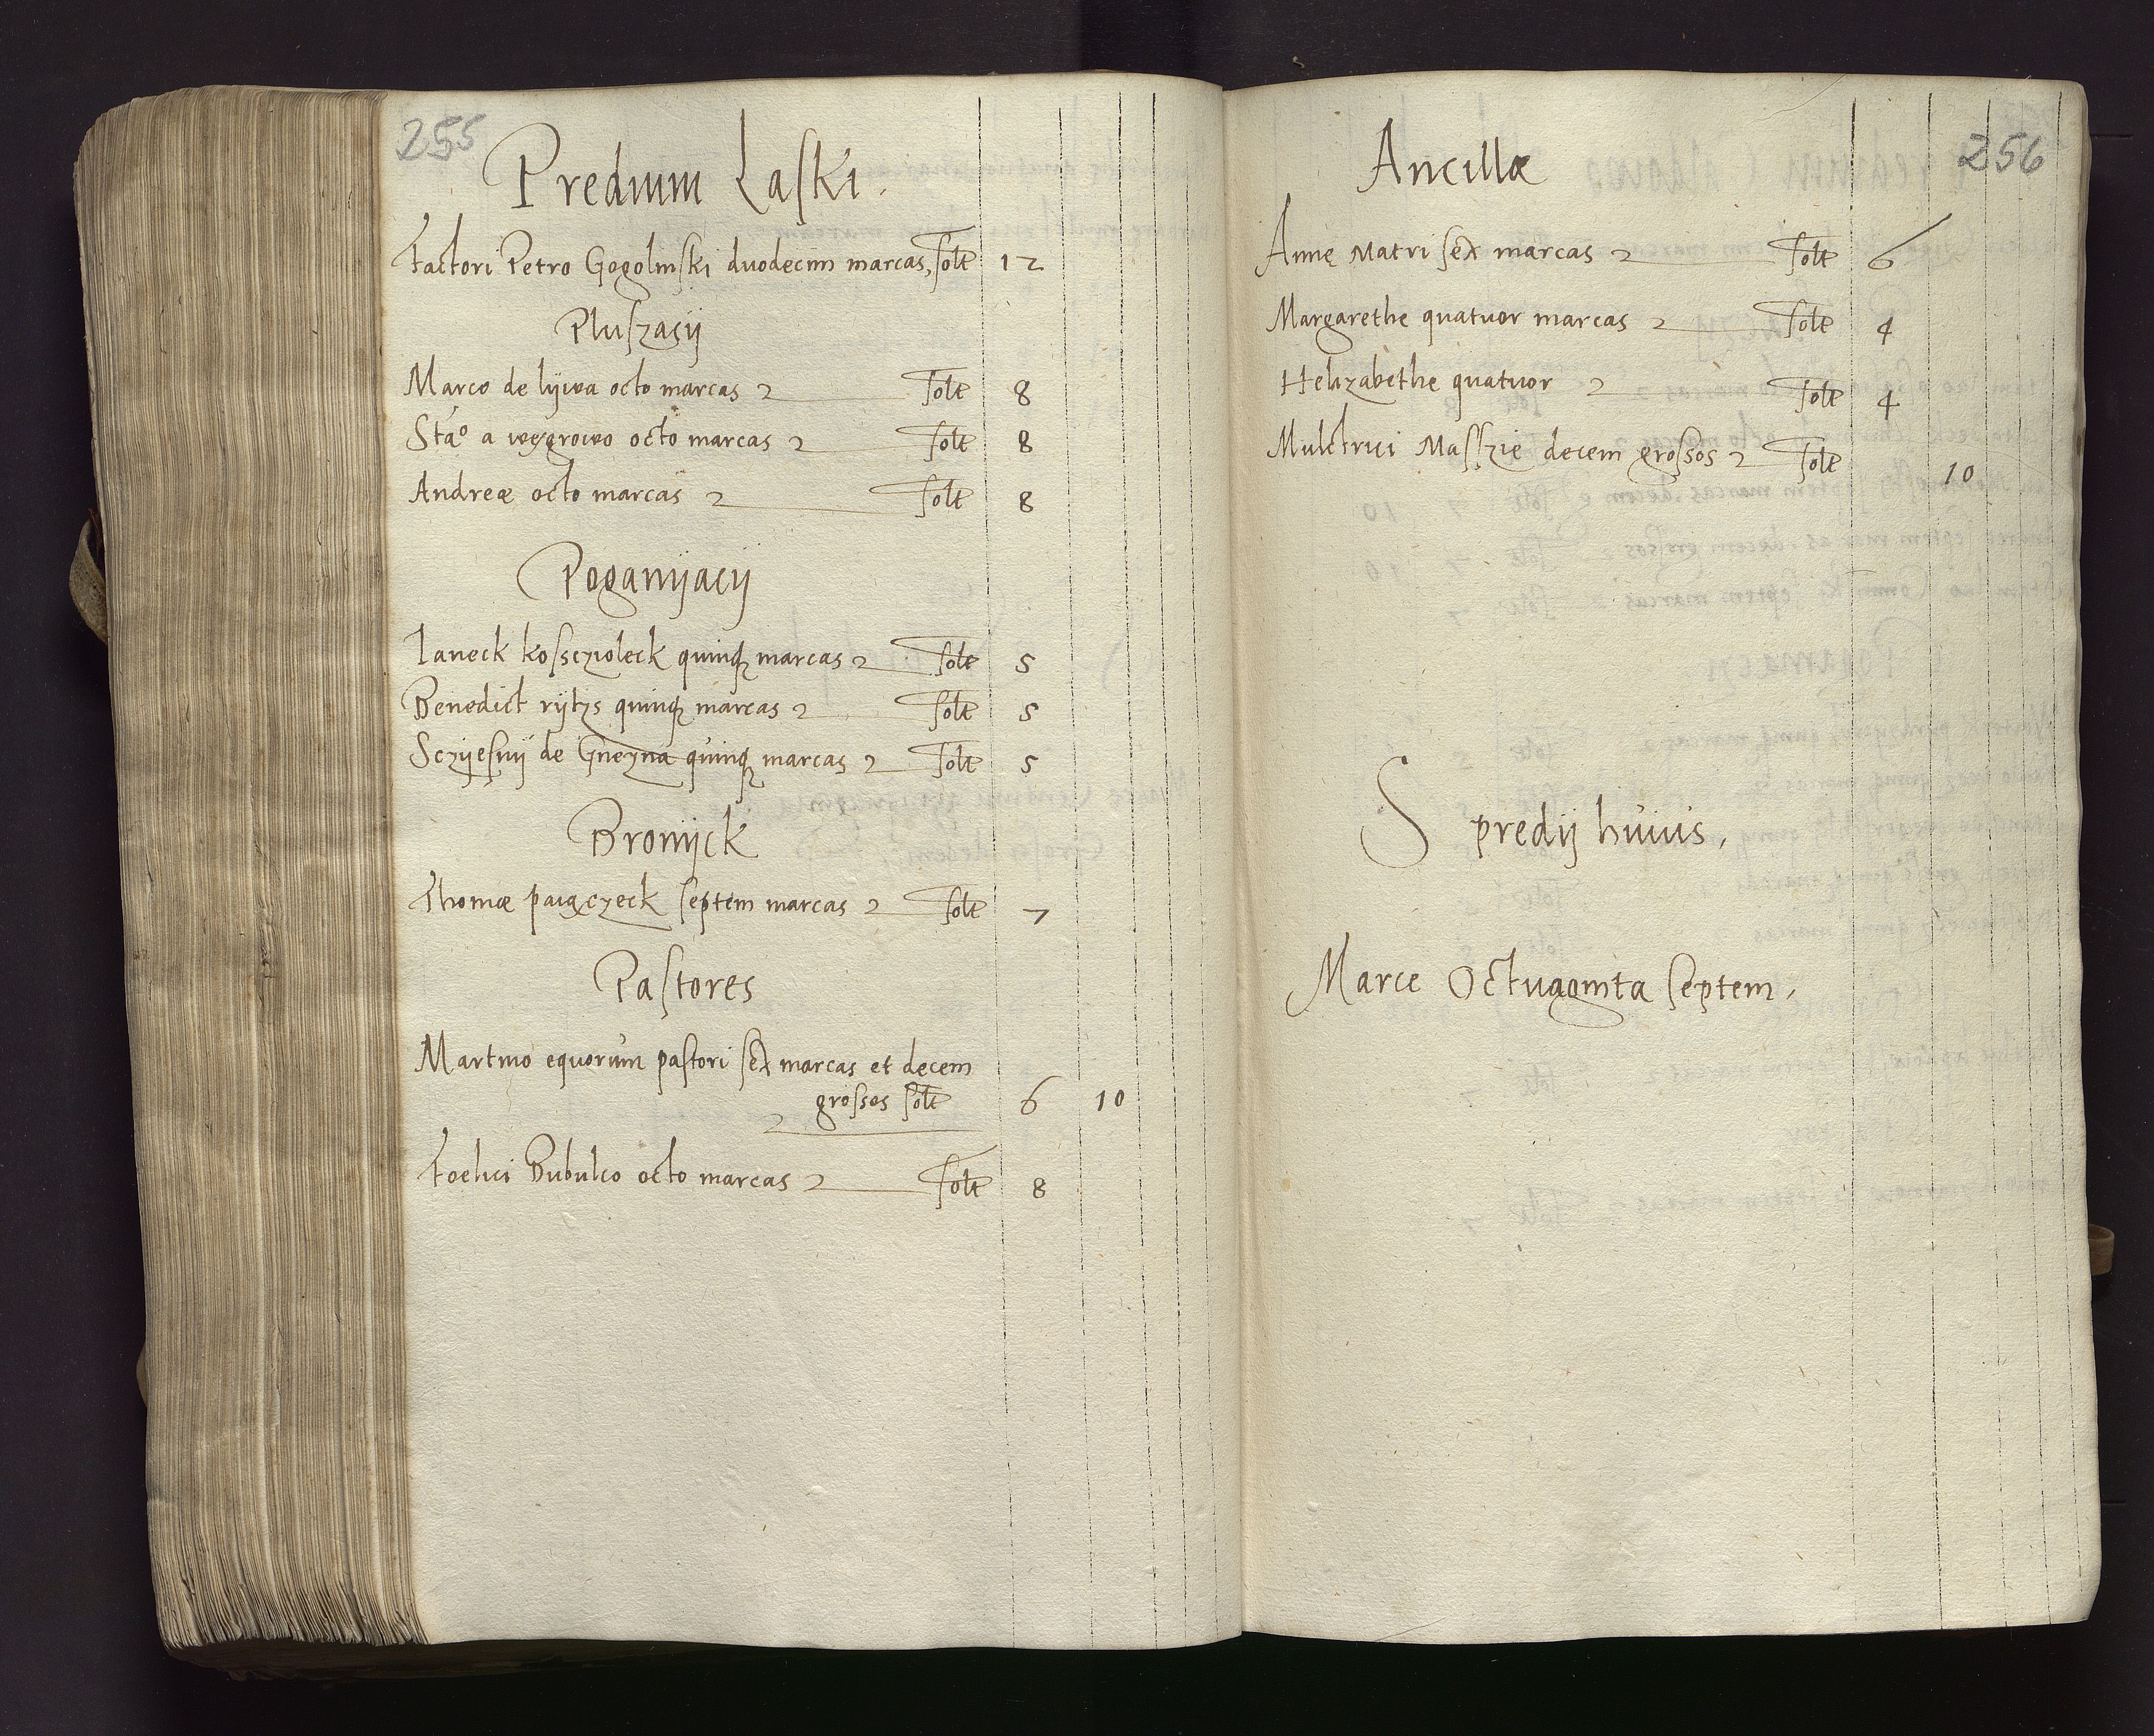 255
Predium Laski.
Factori Petro Gogolinski duodecim marcas, solt 12
Pluszacÿ
Marco de lÿwa octo marcas solt 8
Stao a węgrowo octo marcas solt 8
Andreæ octo marcas solt 8
Poganÿacÿ
Ianeck kossczioleck quinqz marcas solt 5
Benedict rÿtzs quinqz marcas solt 5
Sczÿesnÿ de Gnezna quinqz marcas solt 5
Bronÿck
Thomæ paiączeck septem marcas solt 7
Pastores
Martino equorum pastori sex marcas et decem
grossos solt 6 10
Foelici Bubulco octo marcas solt 8
256
Ancillæ
Annę Matri sex marcas solt 6
Margarethe quatuor marcas solt 4
Helizabethe quatuor solt 4
Mulctrici Masszie decem grossos solt 10
S predij huius,
Marce Octuaginta septem,